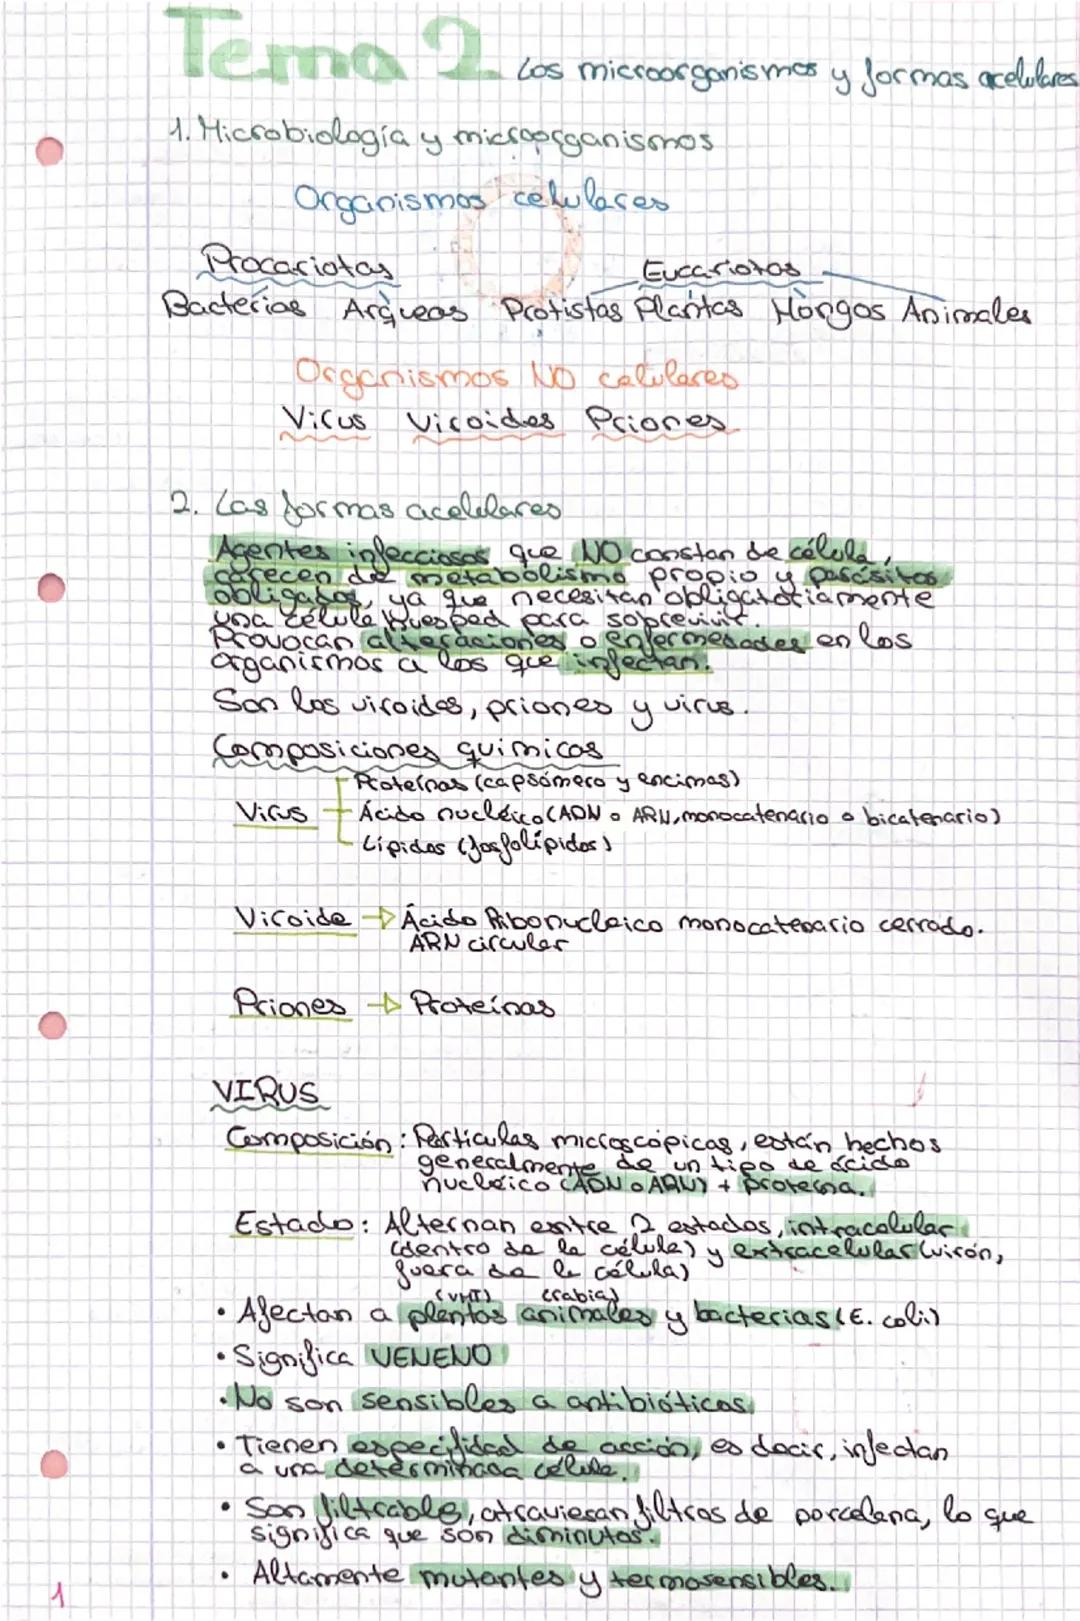 Tema 2 Los microorganismos y formas acelulares
1. Microbiología y microorganismos
Organismos celulares
Procariotas Eucariotas
Bacterias Arqueas Protistas Plantas Hongos Animales
Organismos NO celulares
Virus Viroides Priones
2. Las formas acelulares
Agentes infecciosos que NO constan de célula,
carecen de metabolismo propio y parásitos
obligados, ya que necesitan obligatoriamente
una célula huésped para sobrevivir.
Provocan alteraciones o enfermedades en los
organismos a los que infectan.
Son los viroides, priones y virus.
Composiciones químicas
Proteínas (capsómero y encimas)
Virus Ácido nucléico (ADN o ARN, monocatenario o bicatenario)
Lípidos (fosfolípidos)
Viroide → Ácido Ribonucleico monocatenario cerrado.
ARN circular
Priones → Proteínas
VIRUS
Composición: Partículas microscópicas, están hechos
generalmente de un tipo de ácido
nucléico (ADN o ARN) + proteína.
Estado: Alternan entre 2 estados, intracelular
(dentro de la célula) y extracelular (virón,
fuera de la célula)
(VHT) (rabia)
• Afectan a plantas animales y bacterias (E. coli)
• Significa VENENO
• No son sensibles a antibióticos.
• Tienen especifidad de acción, es decir, infectan
a una determinada célula.
• Son filtrable, atraviesan filtros de porcelana, lo que
significa que son diminutos.
• Altamente mutantes y termosensibles.
1